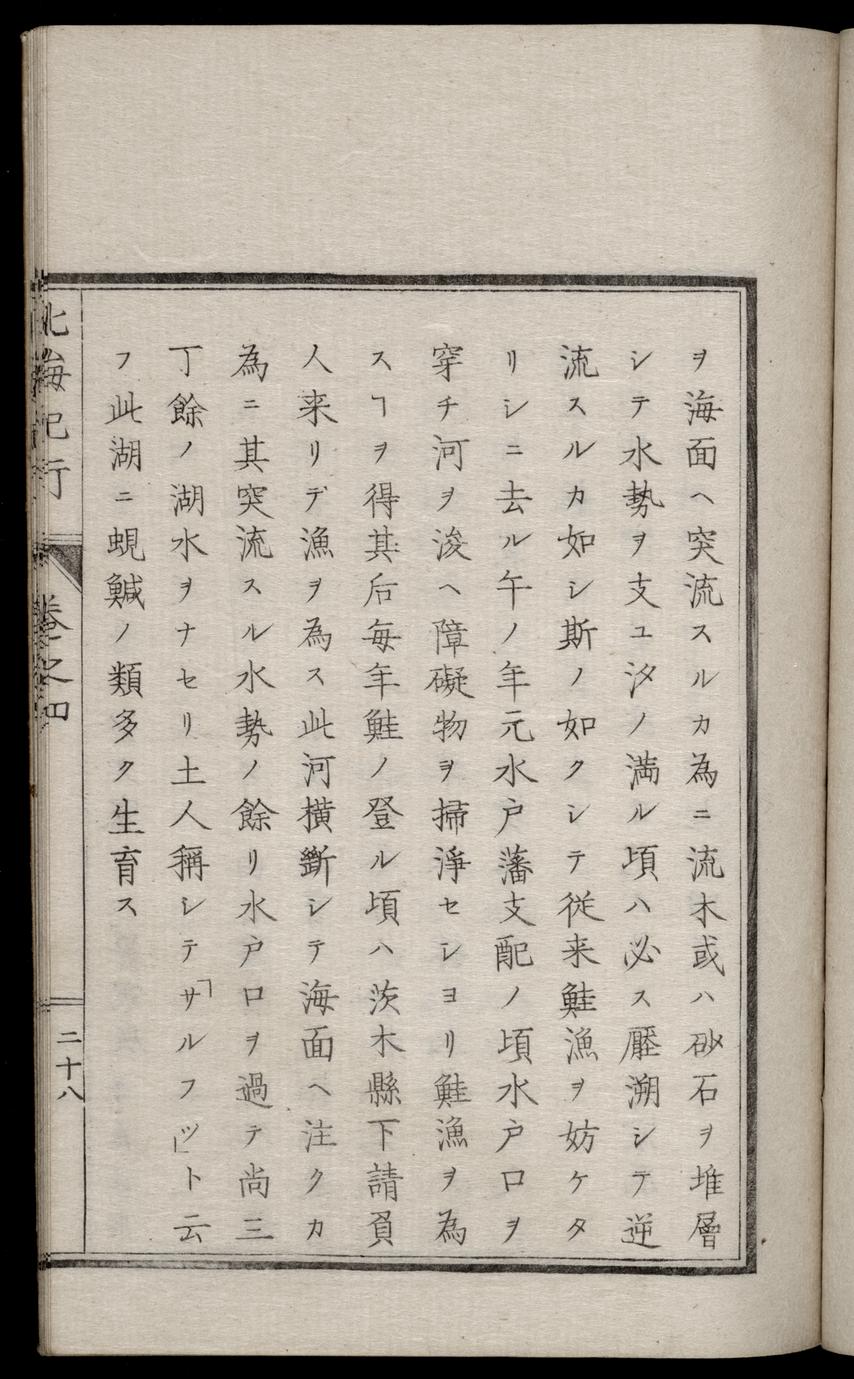 ヲ海面ヘ突流スルカ為ニ流木或ハ砂石ヲ堆層
シテ水勢ヲ支ユ汐ノ満ル頃ハ必ス壓溯シテ逆
流スルカ如シ斯ノ如クシテ従来鮭漁ヲ妨ケタ
リシニ去ル午ノ年元水戸藩支配ノ頃水戸口ヲ
穿チ河ヲ浚ヘ障礙物ヲ掃淨セシヨリ鮭漁ヲ為
スヿヲ得其后毎年鮭ノ登ル頃ハ茨木縣下請負
人来リテ漁ヲ為ス此河横斷シテ海面ヘ注クカ
為ニ其突流スル水勢ノ餘リ水戸口ヲ過テ尚三
丁餘ノ湖水ヲナセリ土人稱シテ「サルフツ」ト云
フ此湖ニ蜆鰄ノ類多ク生育ス
北海紀行
巻之四
二十八